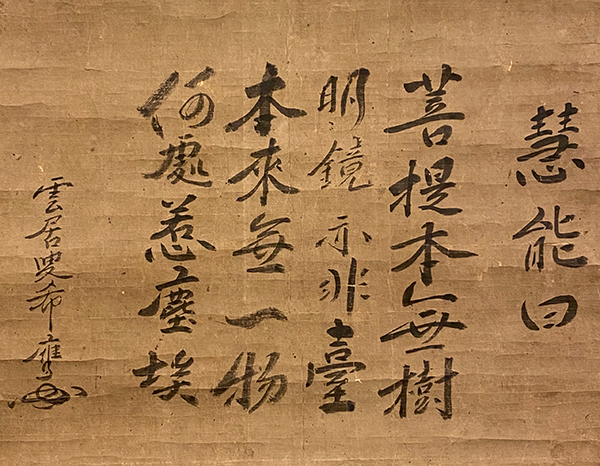 慧能曰
菩提本無樹
明鏡亦非臺
本來無一物
何處惹塵埃
雲居叟希膺